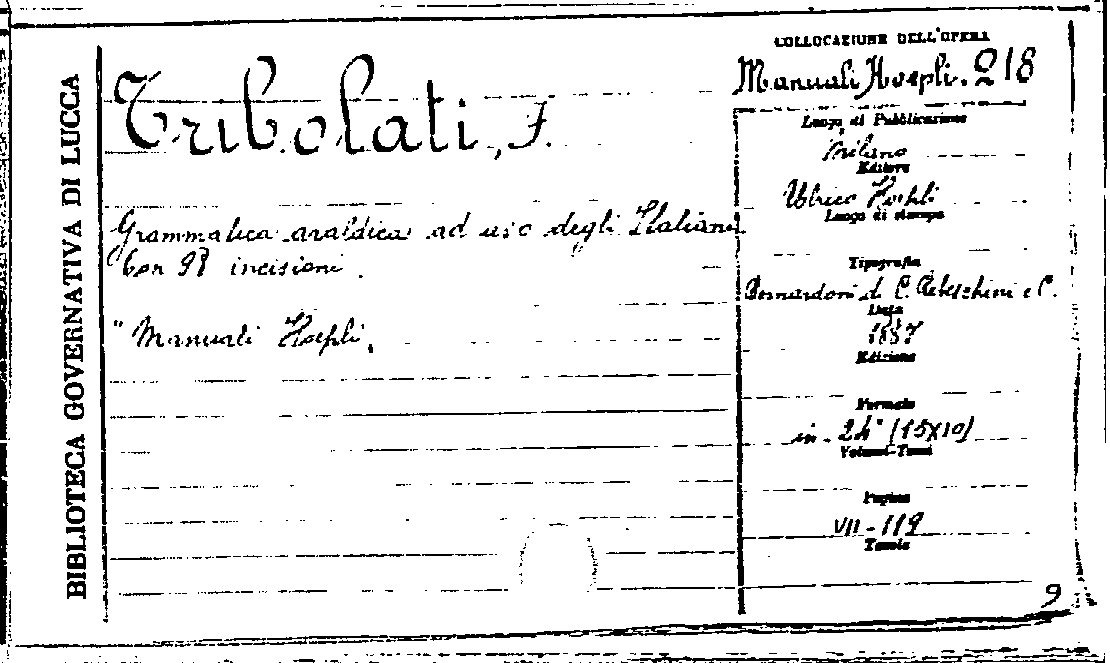 BIBLIOTECA GOVERNATIVA DI LUCCA
Tribolati, F.
Grammatica araldica ad uso degli Italiani
Con 98 incisioni.
"Manuali Hoepli,
COLLOCAZIONE DELL'OPERA
Manuali Hoepli. 218
Luogo di Pubblicazione
Milano
Editore
Ulrico Hoepli
Luogo di stampa
Tipografia
Bernardoni di C. Rebeschini e C.
Data
1887
Edizione
Formato
in-24° (15X10)
Volumi-Tomi
Pagine
VII-119
Tavole
9